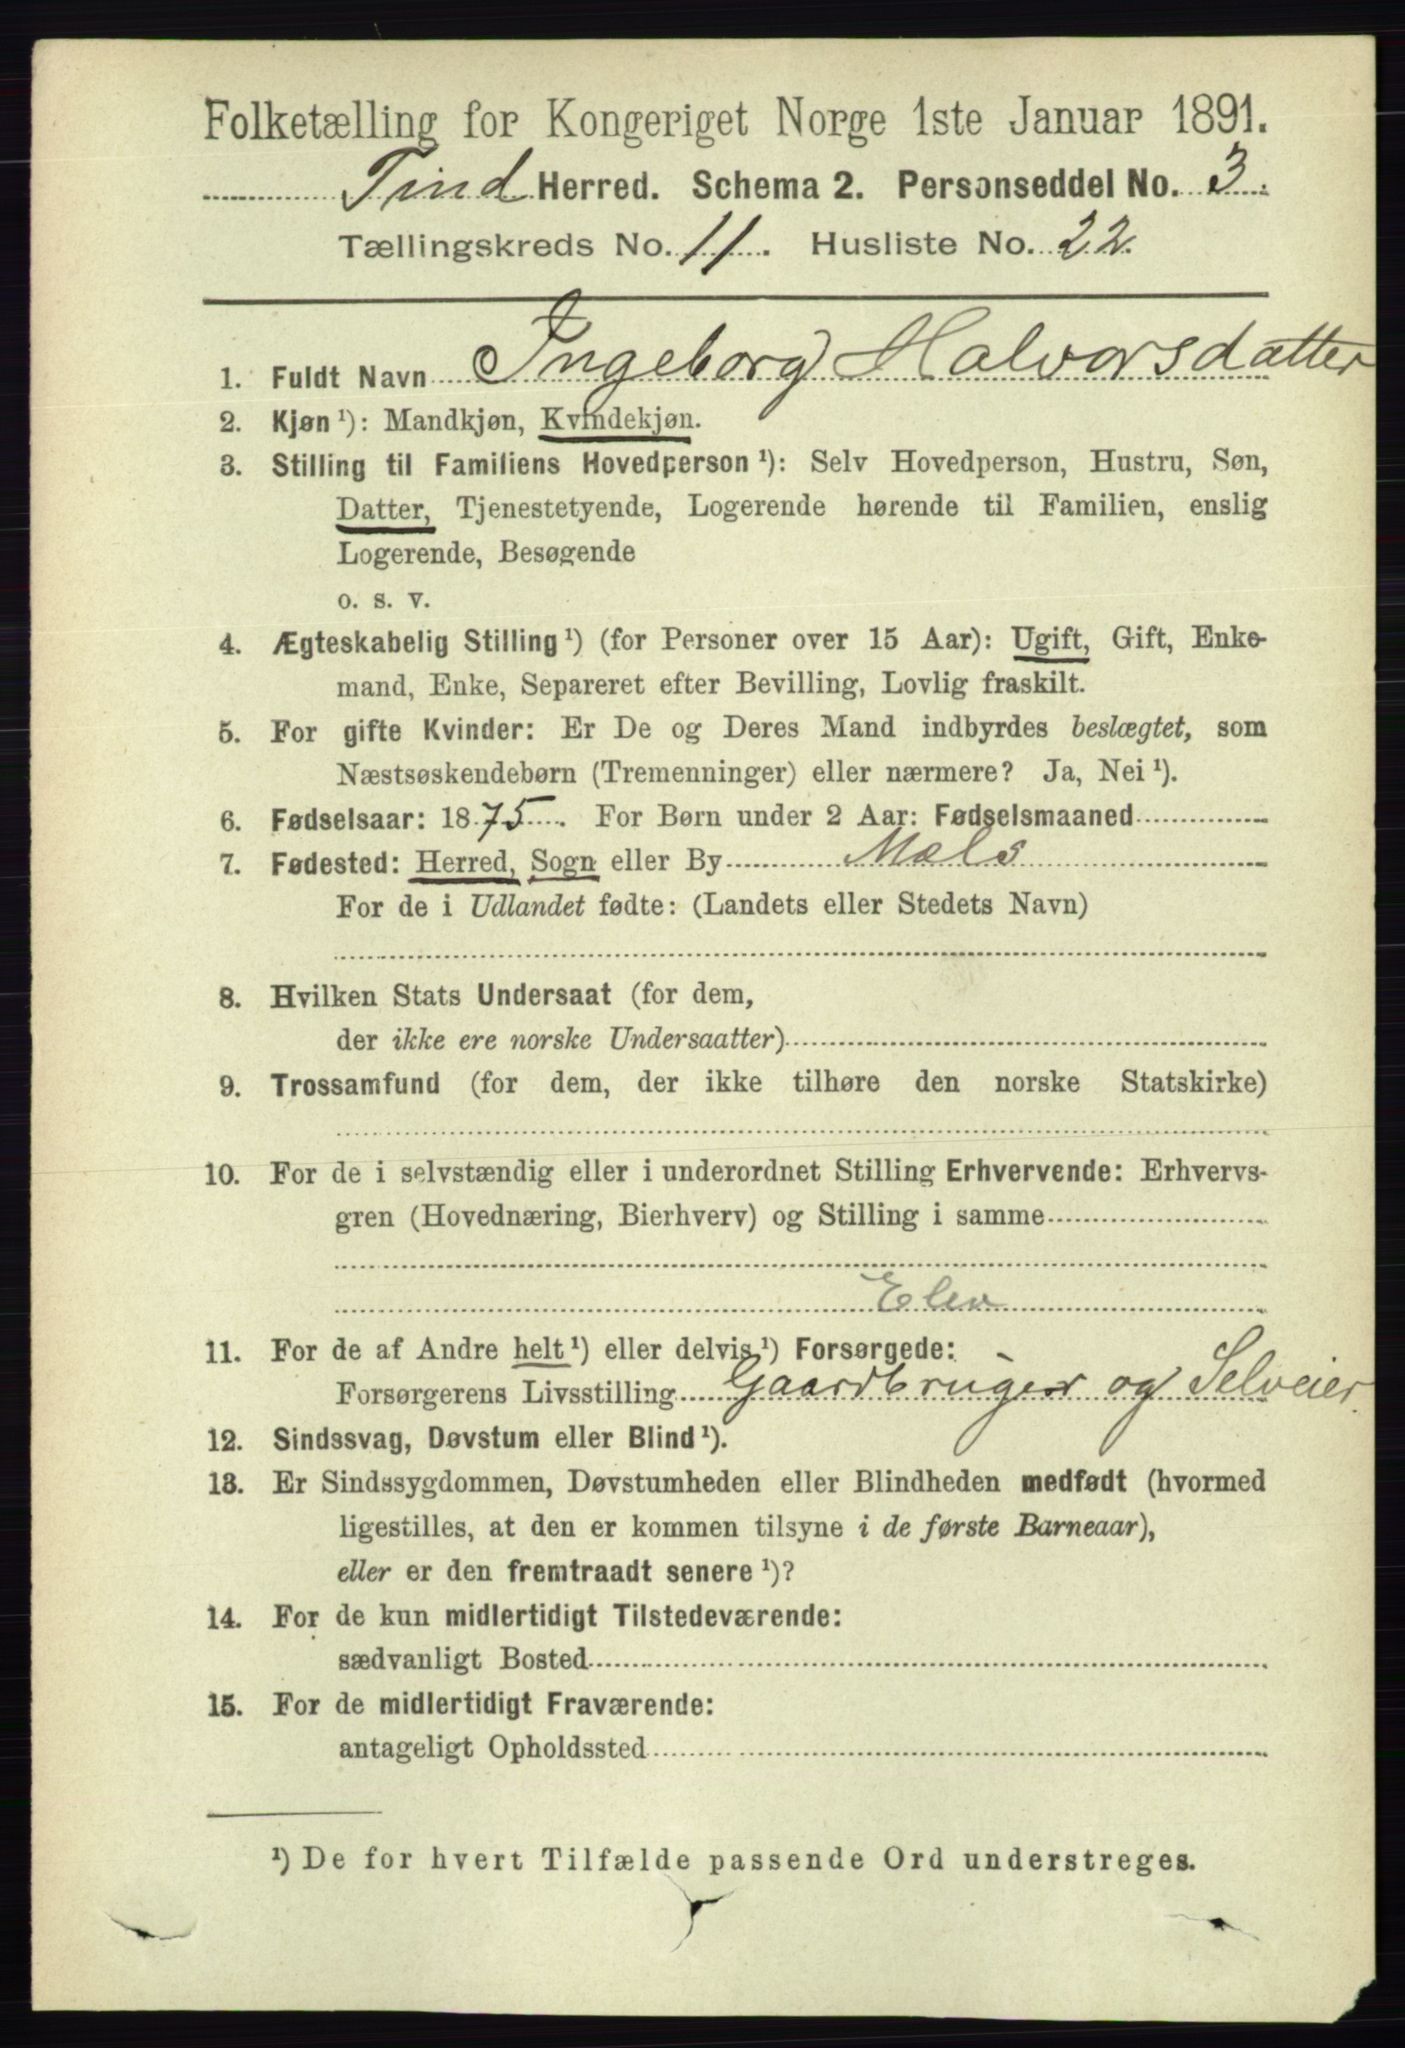 Folketælling for Kongeriget Norge 1ste Januar 1891.
Tind Herred. Schema 2. Personseddel No. 3.
Tællingskreds No. 11. Husliste No. 22.
1. Fuldt Navn Ingeborg Halvorsdatter
2. Kjøn ¹): Mandkjøn, Kvindekjøn.
3. Stilling til Familiens Hovedperson ¹): Selv Hovedperson, Hustru, Søn,
Datter, Tjenestetyende, Logerende hørende til Familien, enslig
Logerende, Besøgende
o. s. v.
4. Ægteskabelig Stilling ¹) (for Personer over 15 Aar): Ugift, Gift, Enke-
mand, Enke, Separeret efter Bevilling, Lovlig fraskilt.
5. For gifte Kvinder: Er De og Deres Mand indbyrdes beslægtet, som
Næstsøskendebørn (Tremenninger) eller nærmere? Ja, Nei ¹).
6. Fødselsaar: 1875. For Børn under 2 Aar: Fødselsmaaned
7. Fødested: Herred, Sogn eller By Mæls
For de i Udlandet fødte: (Landets eller Stedets Navn)
8. Hvilken Stats Undersaat (for dem,
der ikke ere norske Undersaatter)
9. Trossamfund (for dem, der ikke tilhøre den norske Statskirke)
10. For de i selvstændig eller i underordnet Stilling Erhvervende: Erhvervs-
gren (Hovednæring, Bierhverv) og Stilling i samme
Elev
11. For de af Andre helt ¹) eller delvis ¹) Forsørgede:
Forsørgerens Livsstilling Gaardbruger og Selveier.
12. Sindssvag, Døvstum eller Blind ¹).
13. Er Sindssygdommen, Døvstumheden eller Blindheden medfødt (hvormed
ligestilles, at den er kommen tilsyne i de første Barneaar),
eller er den fremtraadt senere ¹)?
14. For de kun midlertidigt Tilstedeværende:
sædvanligt Bosted
15. For de midlertidigt Fraværende:
antageligt Opholdssted
¹) De for hvert Tilfælde passende Ord understreges.